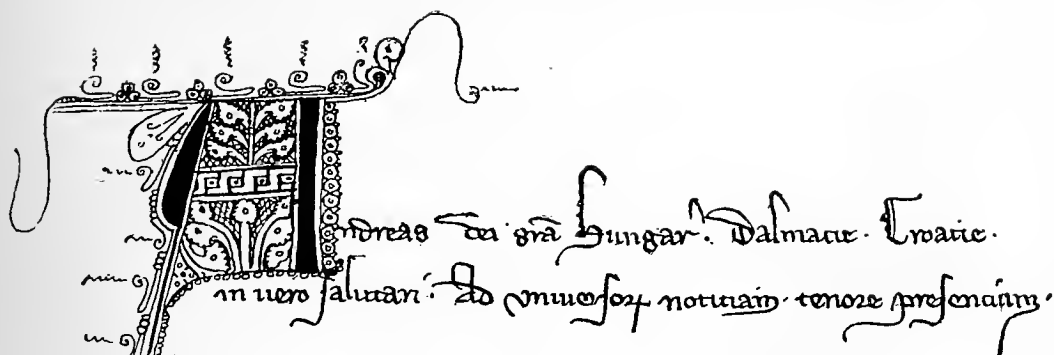 Andreas dei grã Hungar. Dalmatie. Croatie.
in uero salutari. Ad vniuersorꝝ notitiam. tenore presencium.